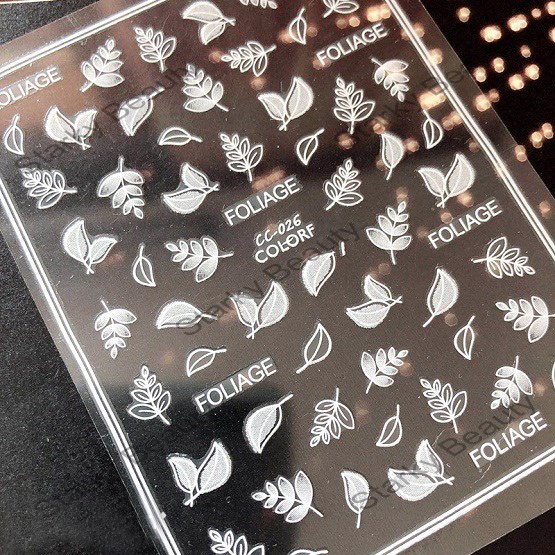 FOLIAGE
FOLIAGE
FOLIAGE
CC-026
COLORF
FOLIAGE
FOLIAGE
FOLIAGE
Starky Beauty
Starky Beauty
Starky Beauty
Starky Beauty
Starky Beauty